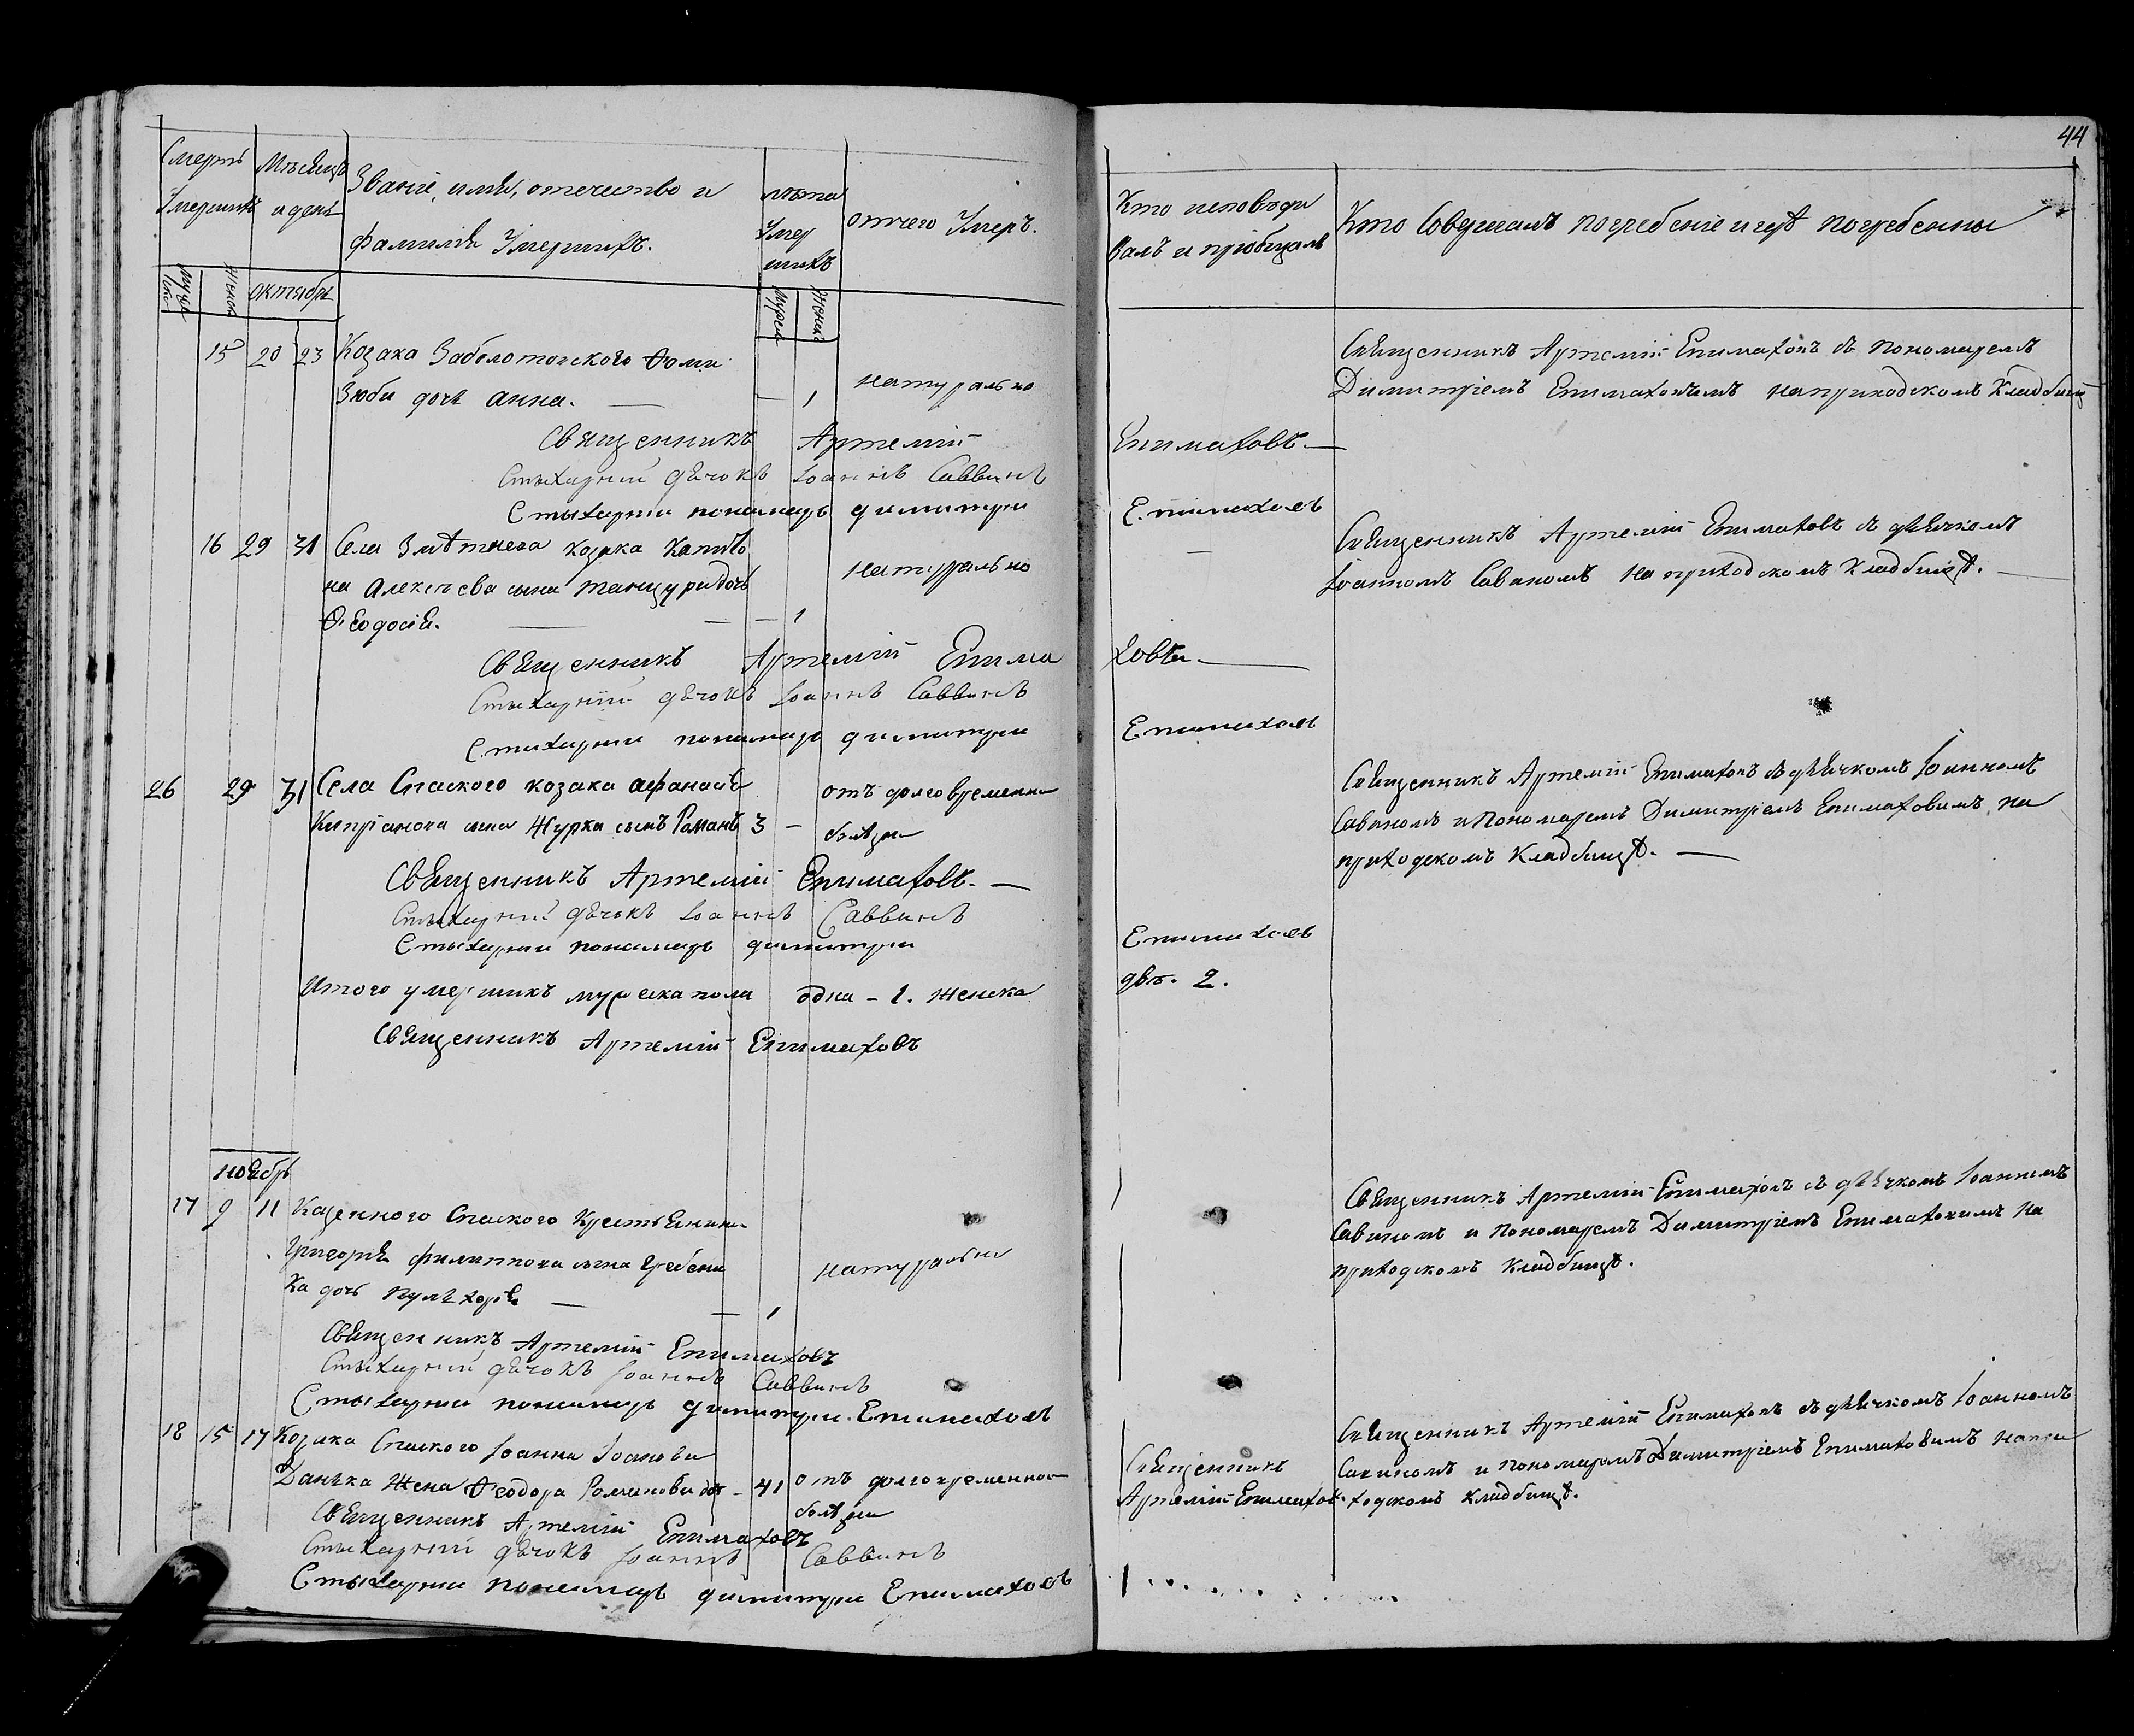 44
Смерть Мѣсяцъ Званіе, имя, отечество и лѣта отчего Умеръ. Кто исповѣды Кто Совершалъ погребеніе и гдѣ погребенны
Умершихъ и день фамилія Умершихъ. Умер валъ и пріобщалъ
шихъ
Мужеск. Женск. октябрь Мужеск Женск
15 20 23 Козака Заболотского Фомы
Зюби дочь Анна. — — 1 натурально
Священникъ Артемій Епимаховъ с пономаремъ
Димитріемъ Епимаховымъ на приходскомъ Кладбищѣ
Священникъ Артемій Епимаховъ. —
Стихарный дячокъ Іоаннъ Саввинъ
Стыхарни пономарь димитри Епимаховъ
16 29 31 Села козака
на Алексѣева сына дочь натурально
Ѳеодосія. — — — 1
Священникъ Артемій Епимаховъ с дьячкомъ
Іоанномъ Савиномъ на приходскомъ Кладбищѣ. —
Священникъ Артемій Епима ховъ. —
Стыхарный дячокъ Іоаннъ Саввинъ
Стихарни пономарь димитри Епимаховъ
26 29 31 Села Спаского козака Афанасія отъ долговременни
Кипріанова сына Журка сынъ Романъ 3 — болѣзни
Священникъ Артемій Епимаховъ с дьячкомъ Іоанномъ
Савиномъ и Пономаремъ Димитріемъ Епимаховимъ на
приходскомъ Кладбищѣ. —
Священникъ Артемій Епимаховъ. —
Стыхарный дячокъ Іоаннъ Саввинъ
Стыхарни пономарь димитри Епимаховъ
Итого умершихъ мужеска пола одна - 1. женска двѣ. 2.
Священникъ Артемій Епимаховъ
ноябрь
17 9 11 Казенного Спаского Крестьянина
Григорія филиппова сына Гребени
ка дочь — — 1 натурально
Священникъ Артемій Епимаховъ с дьячкомъ Іоанномъ
Савиномъ и Пономаремъ Димитріемъ Епимаховимъ на
приходскомъ Кладбищѣ.
Священникъ Артемій Епимаховъ
Стыхарный дячокъ Іоаннъ Саввинъ
Стыхарни пономарь димитри Епимаховъ
18 15 17 Козака Спаского Іоанна Іоанова
Данька Жена Ѳеодора Романова - 41 отъ долговременной
болѣзни
Священникъ
Артемій Епимаховъ.
Священникъ Артемій Епимаховъ с дьячкомъ Іоанномъ
Савиномъ и пономаремъ Димитріемъ Епимаховимъ на при
ходскомъ Кладбищѣ.
Священникъ Артемій Епимаховъ
Стыхарный дячокъ Іоаннъ Саввинъ
Стыхарни пономарь димитри Епимаховъ